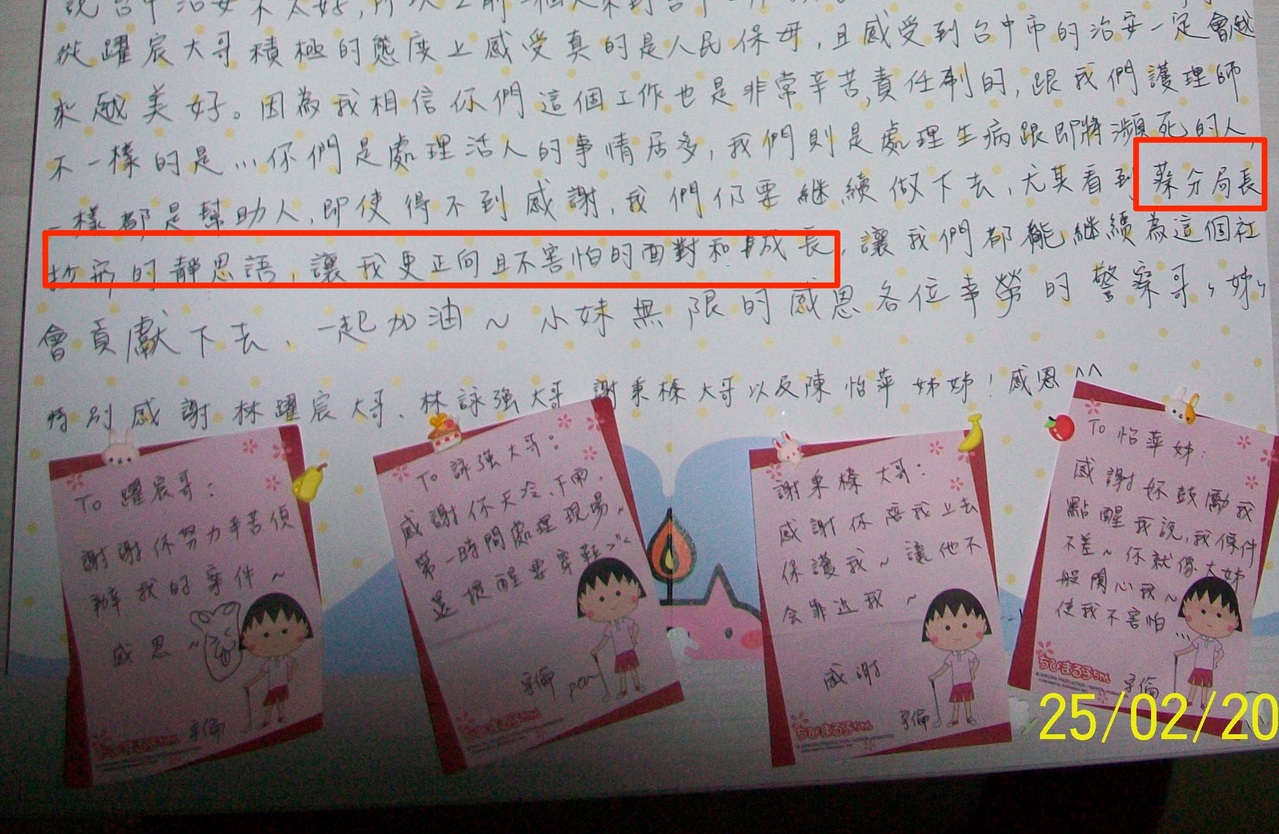 說台中治安不太好,所以
從躍宸大哥積極的態度上感受真的是人民保母,且感受到台中市的治安一定會越
來越美好。因為我相信你們這個工作也是非常辛苦,責任制的,跟我們護理師
不一樣的是...你們是處理活人的事情居多,我們則是處理生病跟即將瀕死的人,
一樣都是幫助人,即使得不到感謝,我們仍要繼續做下去,尤其看到蔡分局長
的靜思語,讓我更正向且不害怕的面對和成長,讓我們都能繼續為這個社
會貢獻下去、一起加油~小妹無限的感恩各位辛勞的警察哥哥姊姊
特別感謝林躍宸大哥 林詠強大哥 謝秉樑大哥以及陳怡萍姊姊!感恩^^
To 躍宸哥:
謝謝你努力辛苦偵
辦我的案件~
感恩~
To 詠強大哥:
感謝你天冷、下雨、
第一時間處理現場~
還提醒要穿鞋>"<
謝秉樑大哥:
感謝你陪我上去
保護我~讓他不
会靠近我~
感謝
To 怡萍姊:
感謝妳鼓勵我
點醒我說,我條件
不差~你就像大姊
般関心我~
使我不害怕...
ちびまる子ちゃん
25/02/20